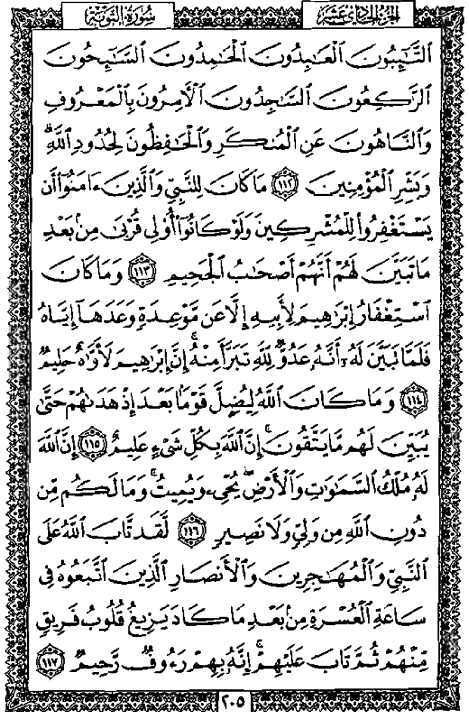 الجزء الحادي عشر
سورة التوبة
ٱلتَّٰٓئِبُونَ ٱلْعَٰبِدُونَ ٱلْحَٰمِدُونَ ٱلسَّٰٓئِحُونَ
ٱلرَّٰكِعُونَ ٱلسَّٰجِدُونَ ٱلْأٓمِرُونَ بِٱلْمَعْرُوفِ
وَٱلنَّاهُونَ عَنِ ٱلْمُنكَرِ وَٱلْحَٰفِظُونَ لِحُدُودِ ٱللَّهِۗ
وَبَشِّرِ ٱلْمُؤْمِنِينَ ١١٢ مَا كَانَ لِلنَّبِيِّ وَٱلَّذِينَ ءَامَنُوٓا۟ أَن
يَسْتَغْفِرُوا۟ لِلْمُشْرِكِينَ وَلَوْ كَانُوٓا۟ أُو۟لِى قُرْبَىٰ مِنۢ بَعْدِ
مَا تَبَيَّنَ لَهُمْ أَنَّهُمْ أَصْحَٰبُ ٱلْجَحِيمِ ١١٣ وَمَا كَانَ
ٱسْتِغْفَارُ إِبْرَٰهِيمَ لِأَبِيهِ إِلَّا عَن مَّوْعِدَةٍ وَعَدَهَآ إِيَّاهُ
فَلَمَّا تَبَيَّنَ لَهُۥٓ أَنَّهُۥ عَدُوٌّ لِّلَّهِ تَبَرَّأَ مِنْهُۚ إِنَّ إِبْرَٰهِيمَ لَأَوَّٰهٌ حَلِيمٌ
١١٤ وَمَا كَانَ ٱللَّهُ لِيُضِلَّ قَوْمًۢا بَعْدَ إِذْ هَدَىٰهُمْ حَتَّىٰ
يُبَيِّنَ لَهُم مَّا يَتَّقُونَۚ إِنَّ ٱللَّهَ بِكُلِّ شَىْءٍ عَلِيمٌ ١١٥ إِنَّ ٱللَّهَ
لَهُۥ مُلْكُ ٱلسَّمَٰوَٰتِ وَٱلْأَرْضِۖ يُحْىِۦ وَيُمِيتُۚ وَمَا لَكُم مِّن
دُونِ ٱللَّهِ مِن وَلِىٍّ وَلَا نَصِيرٍ ١١٦ لَّقَد تَّابَ ٱللَّهُ عَلَى
ٱلنَّبِىِّ وَٱلْمُهَٰجِرِينَ وَٱلْأَنصَارِ ٱلَّذِينَ ٱتَّبَعُوهُ فِى
سَاعَةِ ٱلْعُسْرَةِ مِنۢ بَعْدِ مَا كَادَ يَزِيغُ قُلُوبُ فَرِيقٍ
مِّنْهُمْ ثُمَّ تَابَ عَلَيْهِمْۚ إِنَّهُۥ بِهِمْ رَءُوفٌ رَّحِيمٌ ١١٧
٢٠٥